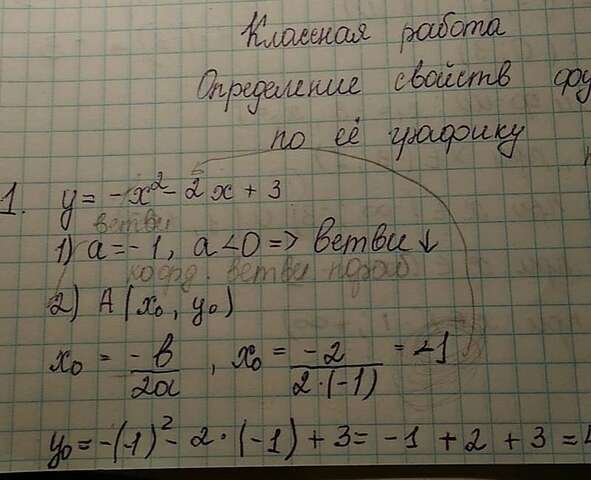 Классная работа
Определение свойств фу
по её графику
1. y = -x² - 2x + 3
ветви
1) a = -1, a < 0 => ветви ↓
коорд. ветви параб
2) A (x₀, y₀)
x₀ = -в/2a, x₀ = -2/2·(-1) = -1
y₀ = -(-1)² - 2·(-1) + 3 = -1 + 2 + 3 =